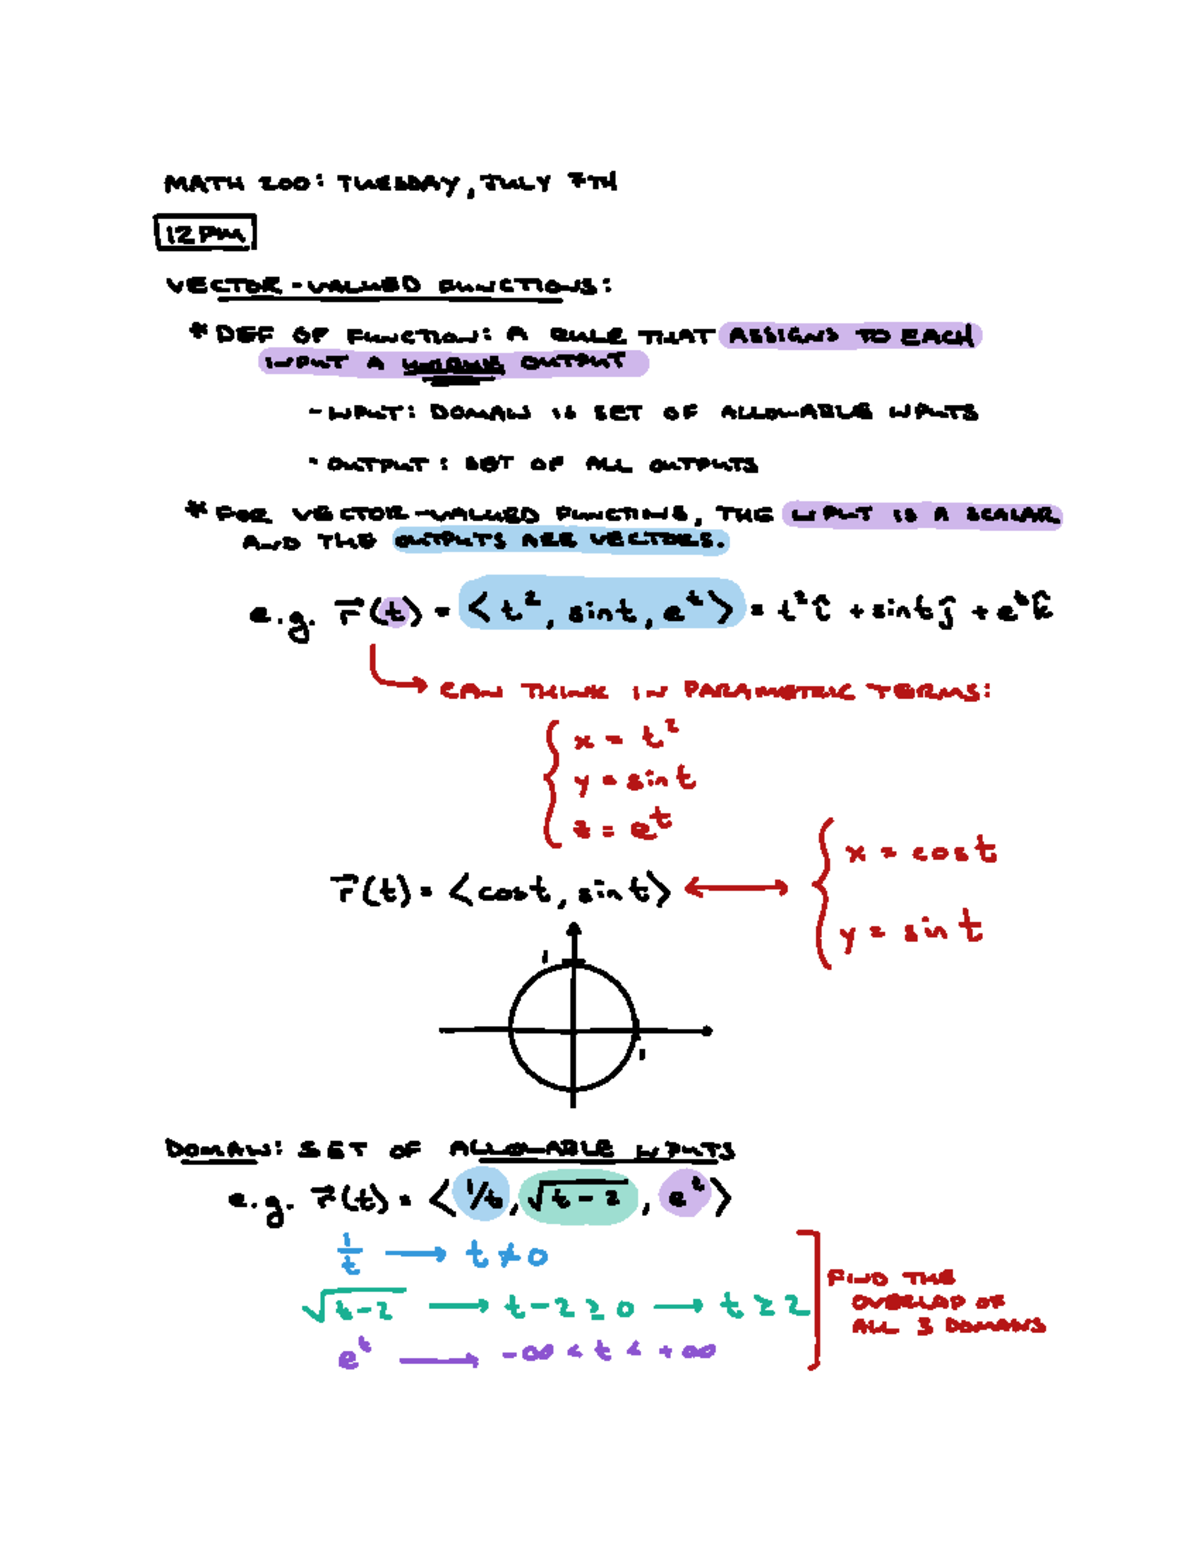 MATH 200: TUESDAY, JULY 7TH
12PM
VECTOR-VALUED FUNCTIONS:
* DEF OF FUNCTION: A RULE THAT ASSIGNS TO EACH
INPUT A UNIQUE OUTPUT
- INPUT: DOMAIN IS SET OF ALLOWABLE INPUTS
- OUTPUT: SET OF ALL OUTPUTS
* FOR VECTOR-VALUED FUNCTIONS, THE INPUT IS A SCALAR
AND THE OUTPUTS ARE VECTORS.
e.g. r⃗(t) = ⟨t², sint, e^t⟩ = t²î + sint ĵ + e^t k̂
CAN THINK IN PARAMETRIC TERMS:
x = t²
y = sint
z = e^t
r⃗(t) = ⟨cost, sint⟩ ⟷ { x = cost
y = sint
1
1
DOMAIN: SET OF ALLOWABLE INPUTS
e.g. r⃗(t) = ⟨1/t, √(t-2), e^t⟩
1/t → t ≠ 0
√(t-2) → t-2 ≥ 0 → t ≥ 2
e^t → -∞ < t < +∞
FIND THE
OVERLAP OF
ALL 3 DOMAINS